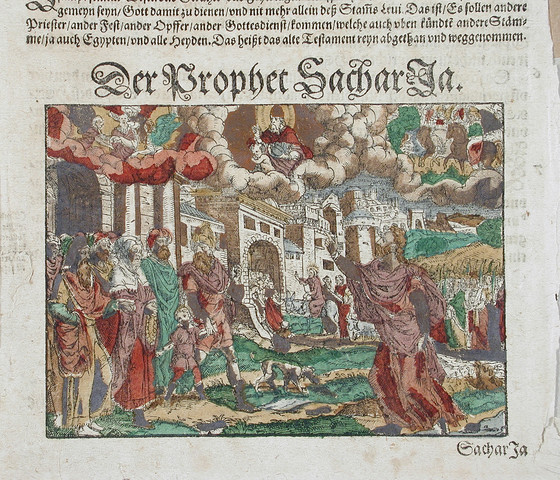 gemeyn seyn/Gott damit zu dienen/vnd mit mehr allein deß Stam̃s Leui. Das ist/Es sollen andere
Priester/ander Fest/ander Opffer/ander Gottesdienst/kommen/welche auch vben kündte andere Stäm-
me/ja auch Egypten/vnd alle Heyden. Das heißt das alte Testament reyn abgethan vnd weggenommen.
Der Prophet SacharJa.
SacharJa